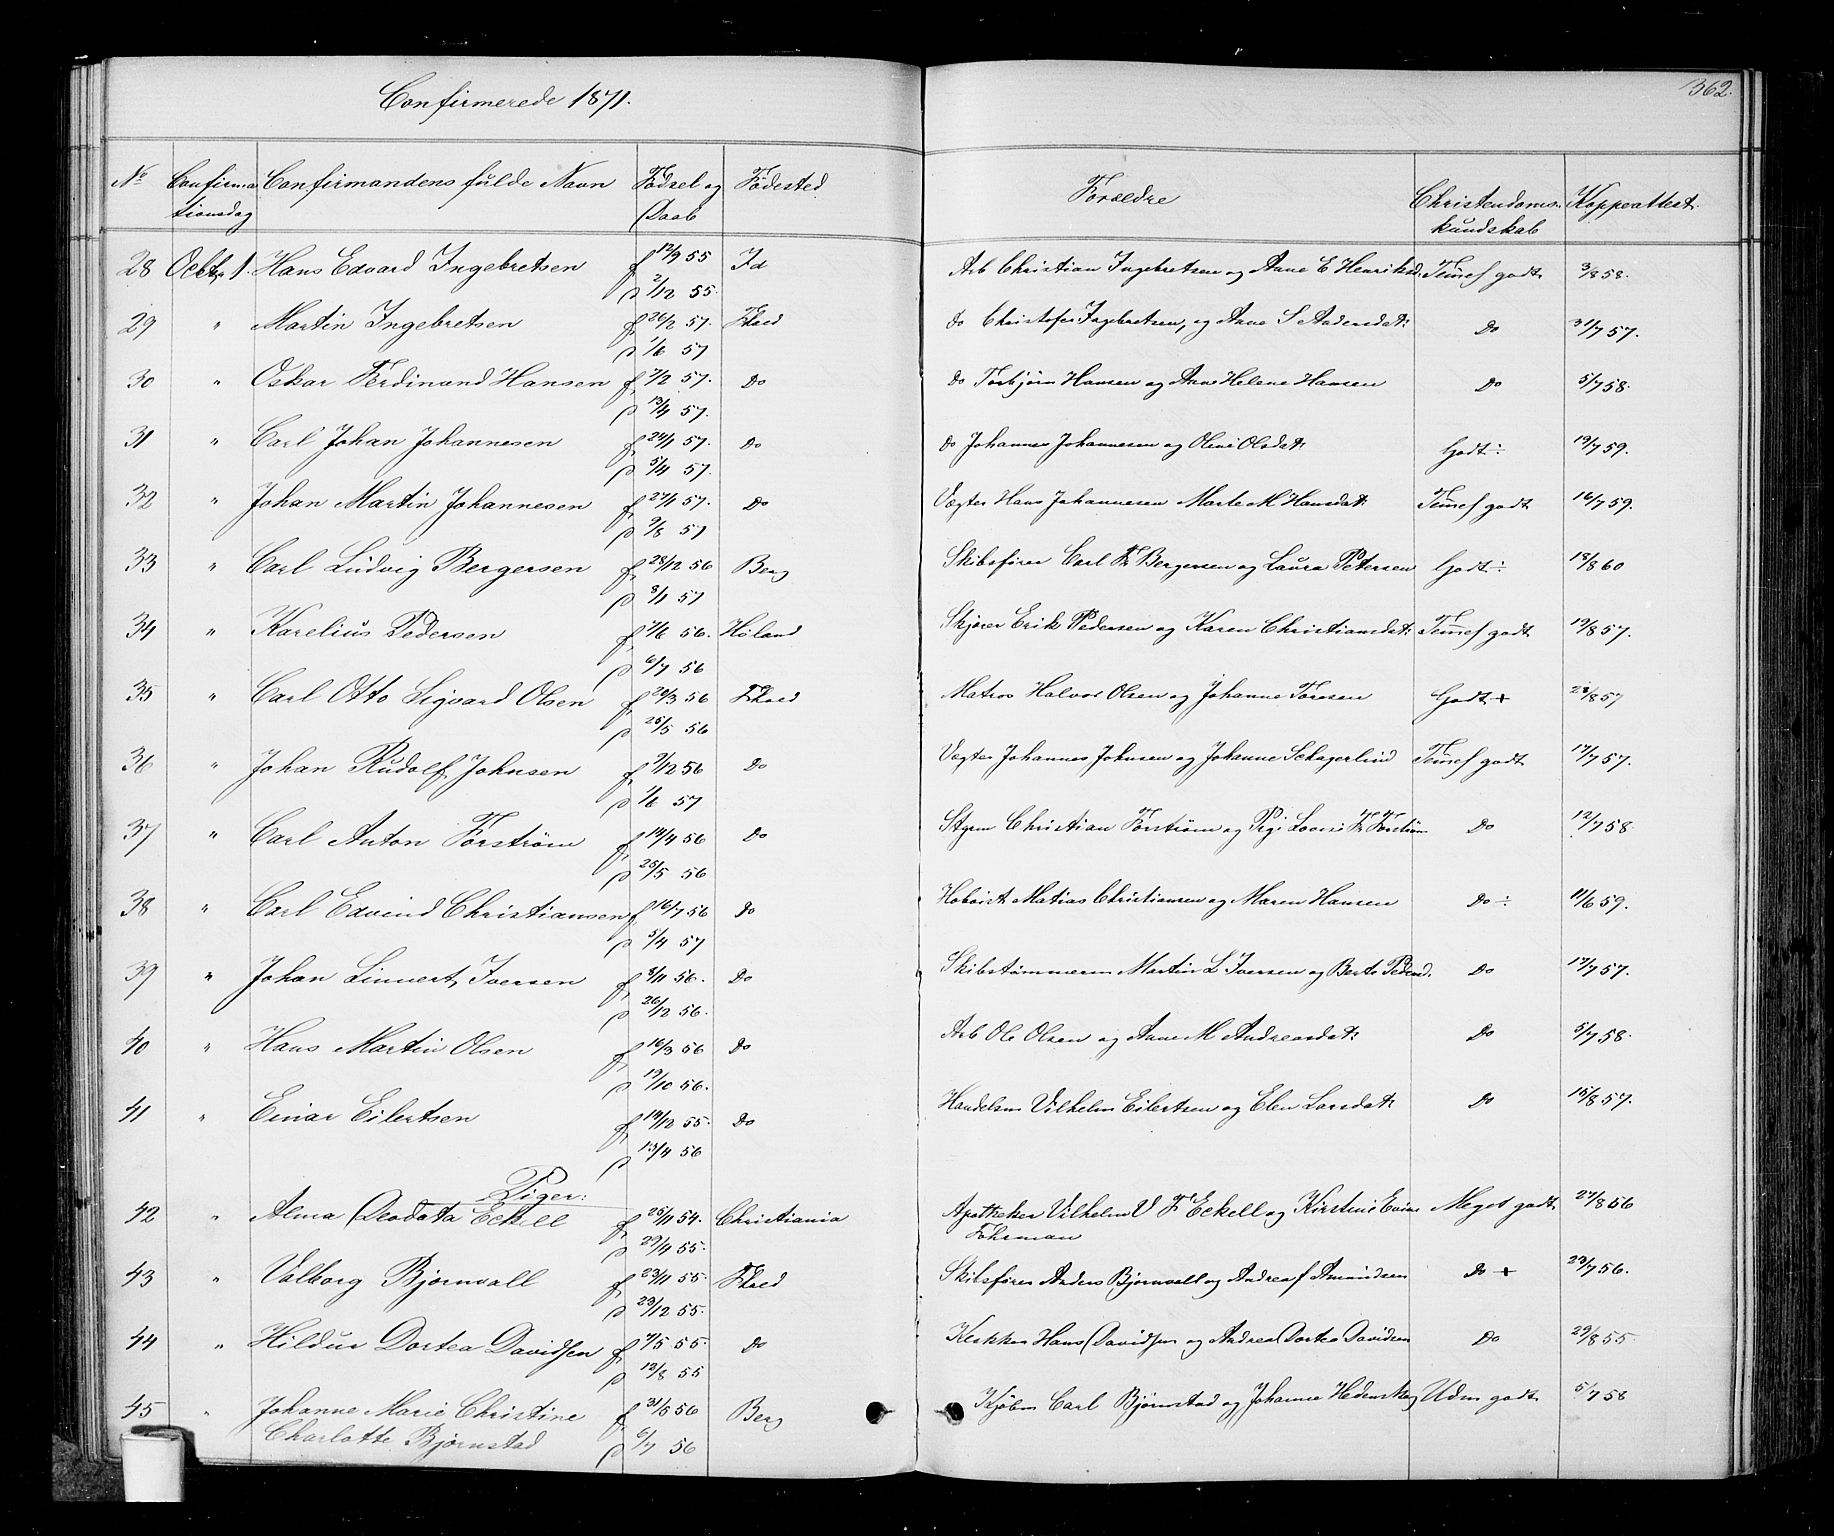 Confirmerede 1871.
362.
No Confirmationsdag Confirmandens fulde Navn Födsel og Daab Födested Forældre Christendomskundskab Koppeattest
28 Octbr 1. Hans Edvard Ingebretsen f 12/9 55 Id Arb Christian Ingebretsen og Anne E Henriksd. Temef godt 3/8 58.
d 2/12 55.
29 " Martin Ingebretsen f 26/2 57. Fhald Do Christofer Ingebretsen, og Anne S Andersdatr Do 31/7 57.
d 1/6 57
30 " Oskar Ferdinand Hansen f 7/2 57. Do Do Torbjørn Hansen og Ane Helene Hansen Do 5/7 58.
d 13/4 57.
31 " Carl Johan Johannesen f 24/1 57. Do Do Johannes Johannesen og Oline Olsdatr Godt ÷ 19/7 59.
d 5/4 57.
32 " Johan Martin Johannesen f 27/1 57. Do Vægter Hans Johannesen Marte M Hansdatr Temef godt 16/7 59.
d 9/8 57
33 " Carl Ludvig Bergersen f 28/12 56 Berg Skibsfører Carl Fr Bergersen og Laura Petersen Godt ÷ 18/8 60
d 8/1 57
34 " Karelius Pedersen f 7/6 56. Høland Skjører Erik Pedersen og Karen Christiansdatr Temef godt 12/8 57.
d 6/7 56
35 " Carl Otto Sigvard Olsen f 20/3 56 Fhald Matros Halvor Olsen og Johanne Toresen Godt + 23/8 57
d 25/5 56
36 " Johan Rudolf Johnsen f 9/12 56 Do Vægter Johannes Johnsen og Johanne Schagerlind Temef godt 17/7 57.
d 1/6 57
37 " Carl Anton Forstrøm f 14/4 56 Do Styrm Christian Forstrøm og Pige Lovise Fr Forstrøm Do 12/7 58
d 25/5 56
38 " Carl Edvind Christiansen f 16/7 56 Do Hoboist Matias Christiansen og Maren Hansen Do ÷ 11/6 59.
d 5/4 57
39 " Johan Linnert, Iversen f 8/11 56. Do Skibstømmerm Martin L Iversen og Berte Pedersd. Do 17/7 57.
d 26/12 56.
40 " Hans Martin Olsen f 16/3 56 Do Arb Ole Olsen og Anne M Andreasdatr Do 5/7 58.
d 19/10 56.
41 " Einar Eilertsen f 14/12 55. Do Handelsm Vilhelm Eilertsen og Elen Larsdatr Do 15/8 57.
d 13/4 56
Piger:
42 " Alma Deodata Eckell f 25/11 54. Christiania Apotheker Vilhelm V F Eckell og Kirstine Evine Fohrman Meget godt 27/8 56
d 29/4 55.
43 " Valborg Bjørnvall f 23/11 55. Fhald Skibsfører Anders Bjørnvall og Andrea f Amundsen Do + 23/7 56.
d 23/12 55.
44 " Hildur Dortea Davidsen f 7/5 55. Do Klokker Hans Davidsen og Andrea Dortea Davidsen Do 29/8 55
d 12/8 55
45 " Johanne Marie Christine f 31/5 56 Berg Kjøbm Carl Bjørnstad og Johanne Hedenskog Udm godt 5/7 58
Charlotte Bjørnstad d 6/7 56